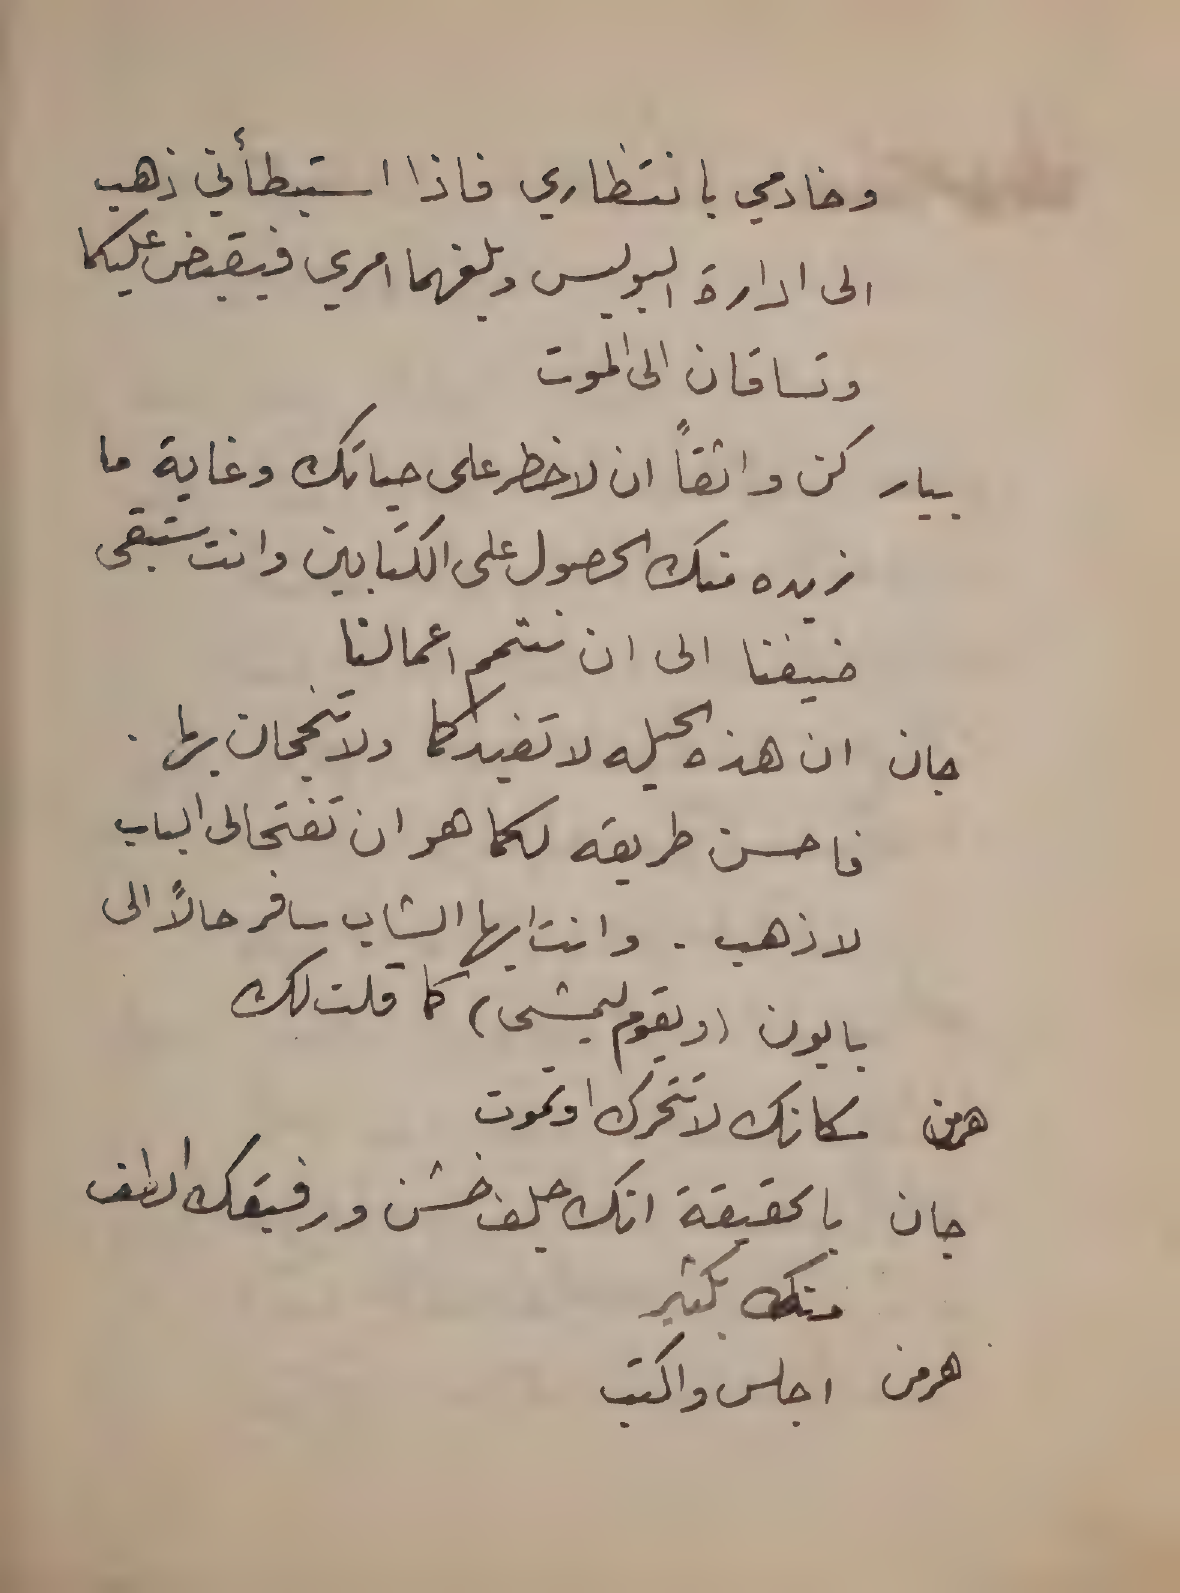 وخادمي بانتظاري فاذا استبطأني ذهب
الى ادارة البوليس وبلغهما امري فيقبض عليكما
وتساقان الى الموت
بيار كن واثقاً ان لا خطر على حياتك وغاية ما
نريده منك الحصول على الكتابين وانت ستبقى
ضيفنا الى ان نتمم اعمالنا
جان ان هذه الحيله لا تفيدكما ولا تنجحان بها .
فاحسن طريقه لكما هو ان تفتحا لي الباب
لاذهب . وانت ايها الشاب سافر حالاً الى
بايون (ويقوم ليمشي) كما قلت لك
هرمن مكانك لا تتحرك او تموت
جان بالحقيقة انك جلف خشن ورفيقك الطف
منك بكثير
هرمن اجلس واكتب